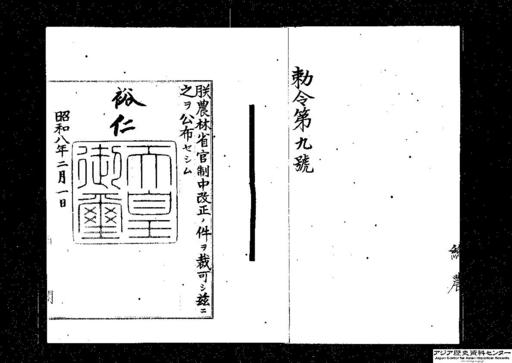 勅令第九號
朕農林省官制中改正ノ件ヲ裁可シ茲ニ
之ヲ公布セシム
裕仁
天皇御璽
昭和八年二月一日
アジア歴史資料センター
Japan Center for Asian Historical Records